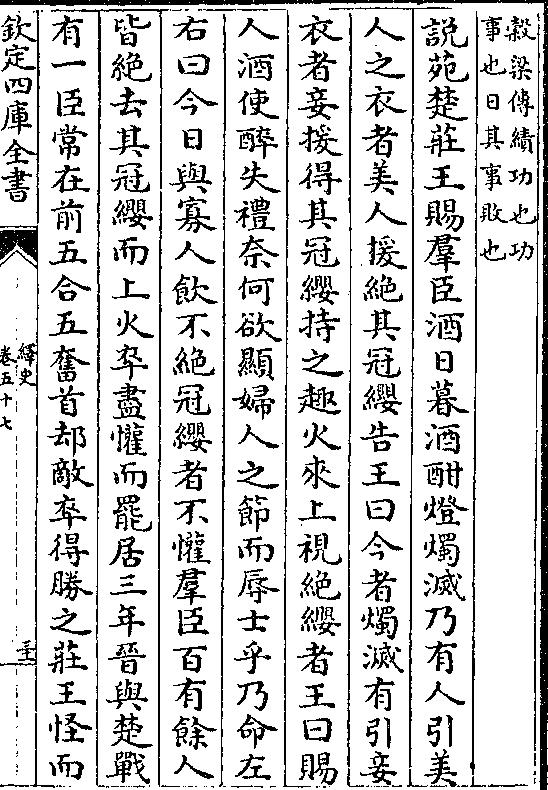 穀梁傳績功也功
事也日其事敗也
説苑楚莊王賜羣臣酒日暮酒酣燈燭滅乃有人引美
人之衣者美人援絶其冠纓告王曰今者燭滅有引妾
衣者妾援得其冠纓持之趣火來上視絶纓者王曰賜
人酒使醉失禮奈何欲顯婦人之節而辱士乎乃命左
右曰今日與寡人飲不絶冠纓者不懽羣臣百有餘人
皆絶去其冠纓而上火卒盡懽而罷居三年晉與楚戰
有一臣常在前五合五奮首却敵卒得勝之莊王怪而
欽定四庫全書
繹史
卷五十七